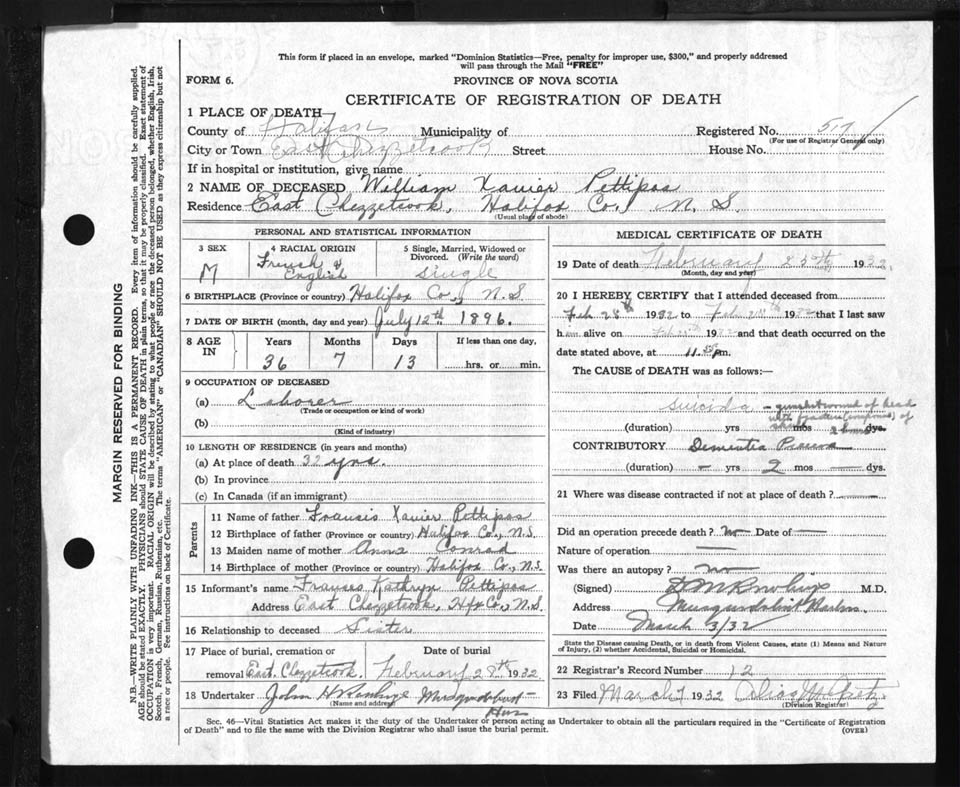 This form if placed in an envelope, marked "Dominion Statistics—Free, penalty for improper use, $300," and properly addressed
will pass through the Mail "FREE"
FORM 6.
PROVINCE OF NOVA SCOTIA
CERTIFICATE OF REGISTRATION OF DEATH
1 PLACE OF DEATH
County of Halifax Municipality of Registered No. 517
(For use of Registrar General only)
City or Town East Chezzetcook Street House No.
If in hospital or institution, give name
2 NAME OF DECEASED William Xavier Pettipas
Residence East Chezzetcook, Halifax Co., N. S.
(Usual place of abode)
PERSONAL AND STATISTICAL INFORMATION
3 SEX 4 RACIAL ORIGIN 5 Single, Married, Widowed or
Divorced. (Write the word)
M French & English single
6 BIRTHPLACE (Province or country) Halifax Co., N.S.
7 DATE OF BIRTH (month, day and year) July 12th 1896.
8 AGE IN Years Months Days If less than one day,
36 7 13 hrs. or min.
9 OCCUPATION OF DECEASED
(a) Laborer
(Trade or occupation or kind of work)
(b)
(Kind of industry)
10 LENGTH OF RESIDENCE (in years and months)
(a) At place of death 32 yrs.
(b) In province
(c) In Canada (if an immigrant)
Parents
11 Name of father Francis Xavier Pettipas
12 Birthplace of father (Province or country) Halifax Co., N.S.
13 Maiden name of mother Anna Conrad
14 Birthplace of mother (Province or country) Halifax Co., N.S.
15 Informant's name Frances Kathryn Pettipas
Address East Chezzetcook, Hfx Co., N.S.
16 Relationship to deceased Sister
17 Place of burial, cremation or Date of burial
removal East Chezzetcook. February 28th 1932
18 Undertaker John H
(Name and address)
MEDICAL CERTIFICATE OF DEATH
19 Date of death February 25th 1932
(Month, day and year)
20 I HEREBY CERTIFY that I attended deceased from
Feb. 1932 to Feb. 1932 that I last saw
him alive on Feb 1932 and that death occurred on
date stated above, at 11. pm.
The CAUSE of DEATH was as follows:
suicide - gunshot wound of head
with fracture (compound) of
skull
(duration) yrs mos 2 hours dys.
CONTRIBUTORY Dementia Praecox
(duration) — yrs 2 mos — dys.
21 Where was disease contracted if not at place of death?
Did an operation precede death? no Date of —
Nature of operation —
Was there an autopsy? no
(Signed) M.D.
Address Musquodoboit Harbor
Date March 3/32
State the Disease causing Death, or in death from Violent Causes, state (1) Means and Nature
of Injury, (2) whether Accidental, Suicidal or Homicidal.
22 Registrar's Record Number 12
23 Filed March 1932
(Division Registrar)
Sec. 46—Vital Statistics Act makes it the duty of the Undertaker or person acting as Undertaker to obtain all the particulars required in the "Certificate of Registration
of Death" and to file the same with the Division Registrar who shall issue the burial permit. (OVER)
MARGIN RESERVED FOR BINDING
N.B.—WRITE PLAINLY WITH UNFADING INK—THIS IS A PERMANENT RECORD. Every item of information should be carefully supplied.
AGE should be stated EXACTLY. PHYSICIANS should STATE CAUSE OF DEATH in plain terms, so that it may be properly classified. Exact statement of
OCCUPATION is very important. RACIAL ORIGIN will be described by stating to what people or race the deceased person belonged, whether English, Irish,
Scotch, French, German, Russian, Ruthenian, etc. The terms "AMERICAN" or "CANADIAN" SHOULD NOT BE USED as they express citizenship but not
a race or people. See instructions on back of Certificate.